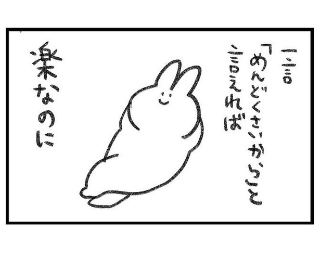 一言
「めんどくさいから」と
言えれば
楽なのに